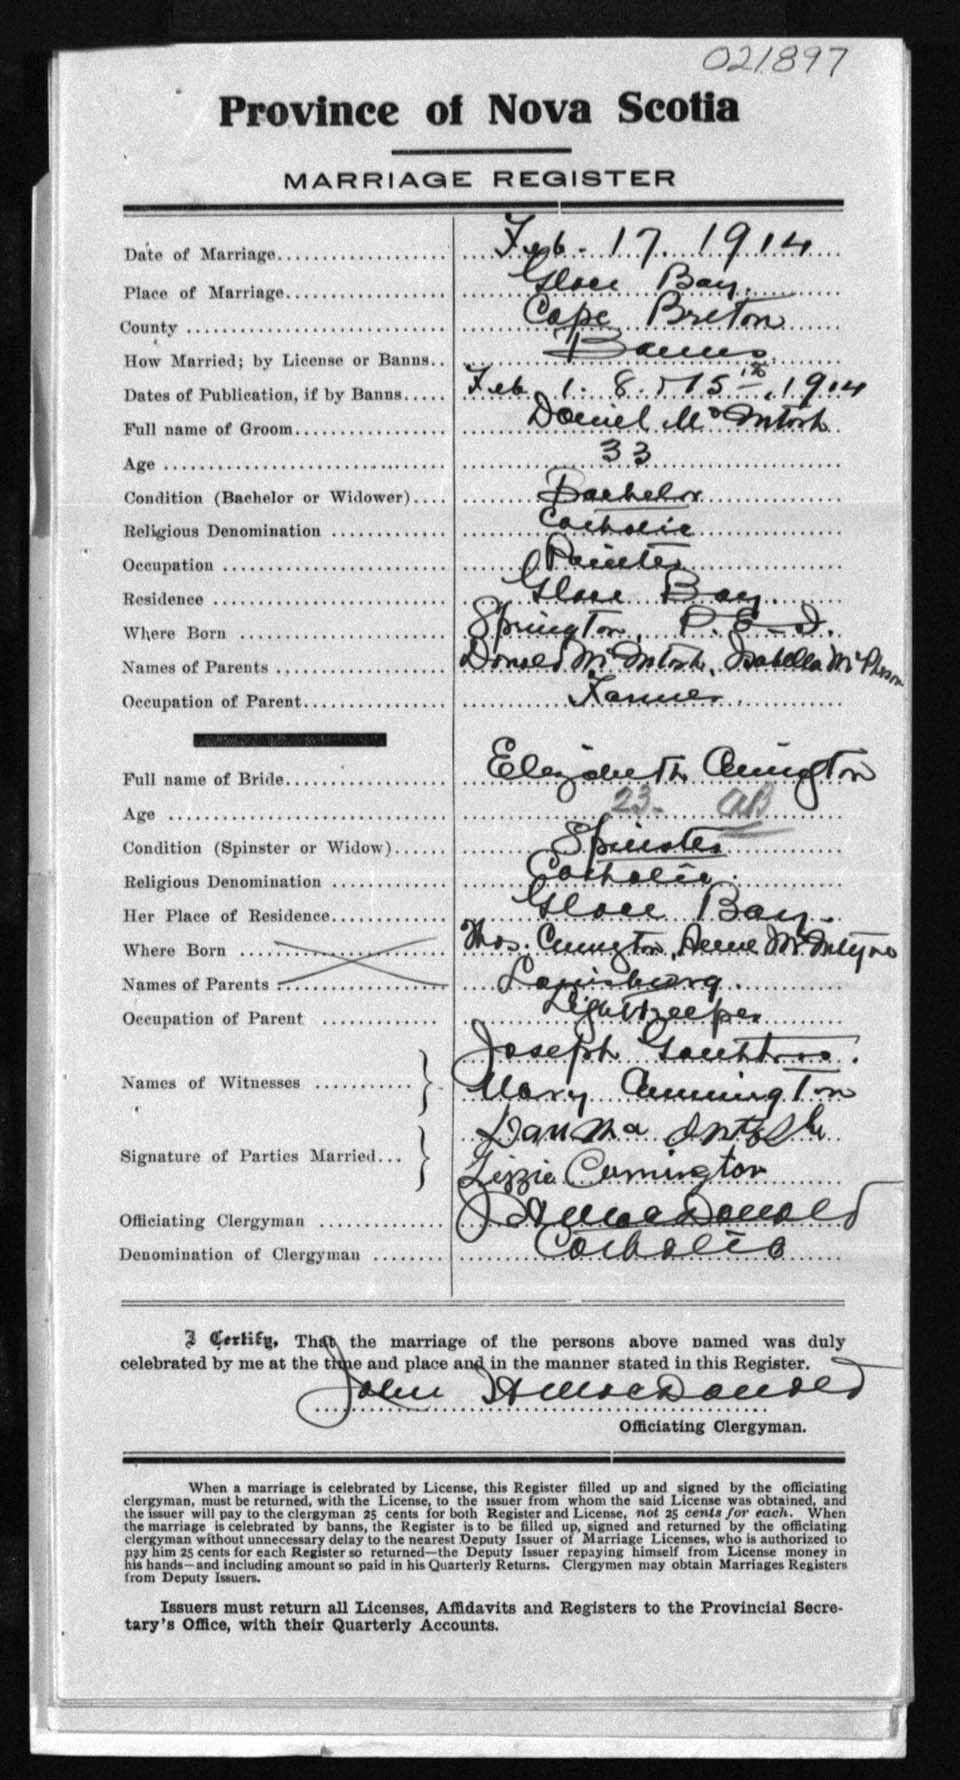 021897
Province of Nova Scotia
MARRIAGE REGISTER
Date of Marriage Feb. 17. 1914
Place of Marriage Glace Bay.
County Cape Breton
How Married; by License or Banns Banns
Dates of Publication, if by Banns Feb. 1. 8. 15th, 1914
Full name of Groom Daniel McIntosh
Age 33
Condition (Bachelor or Widower) Bachelor
Religious Denomination Catholic
Occupation Painter
Residence Glace Bay.
Where Born Springton, P. E. I.
Names of Parents Donald McIntosh, Isabella McPherson
Occupation of Parent Farmer
Full name of Bride Elizabeth Cunington
Age 23- AB
Condition (Spinster or Widow) Spinster
Religious Denomination Catholic.
Her Place of Residence Glace Bay.
Where Born Thos. Cunington, Annie McIntyre
Names of Parents Louisburg.
Occupation of Parent Lightkeeper
Names of Witnesses } Joseph
Mary Cunnington
Signature of Parties Married } Dan Mc Intosh
Lizzie Cunnington
Officiating Clergyman J H MacDonald
Denomination of Clergyman Catholic
I Certify, That the marriage of the persons above named was duly
celebrated by me at the time and place and in the manner stated in this Register.
John H MacDonald
Officiating Clergyman.
When a marriage is celebrated by License, this Register filled up and signed by the officiating
clergyman, must be returned, with the License, to the issuer from whom the said License was obtained, and
the issuer will pay to the clergyman 25 cents for both Register and License, not 25 cents for each. When
the marriage is celebrated by banns, the Register is to be filled up, signed and returned by the officiating
clergyman without unnecessary delay to the nearest Deputy Issuer of Marriage Licenses, who is authorized to
pay him 25 cents for each Register so returned—the Deputy Issuer repaying himself from License money in
his hands—and including amount so paid in his Quarterly Returns. Clergymen may obtain Marriages Registers
from Deputy Issuers.
Issuers must return all Licenses, Affidavits and Registers to the Provincial Secre-
tary's Office, with their Quarterly Accounts.